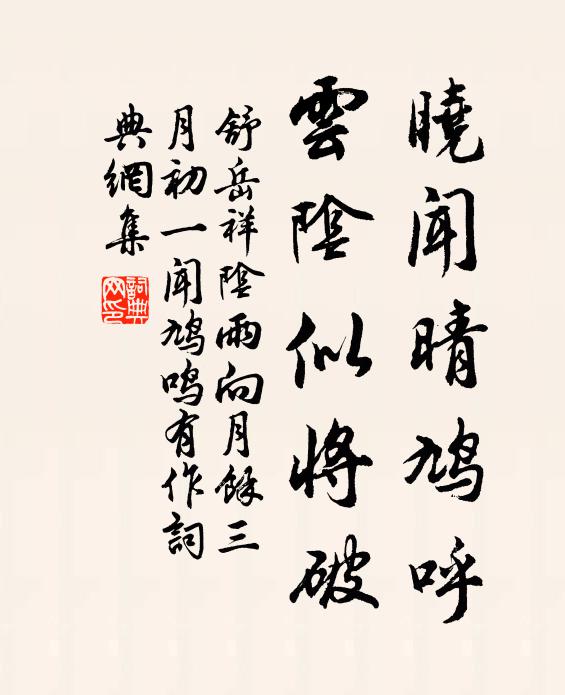 曉聞晴鳩呼
雲陰似將破
舒岳祥陰雨向月餘三
月初一聞鳩鳴有作詞
典網集
詞典
网印